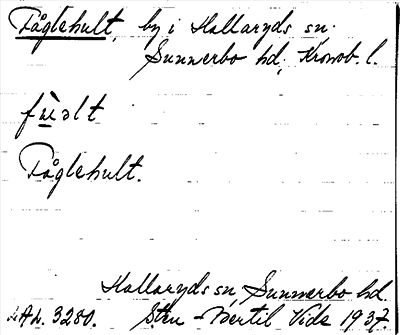 Fåglehult, by i Hallaryds sn.
Sunnerbo hd, Kronob. l.
fùəlt
Fåglehult.
Hallaryds sn, Sunnerbo hd.
LAL. 3280. Sten-Bertil Vide 1937.